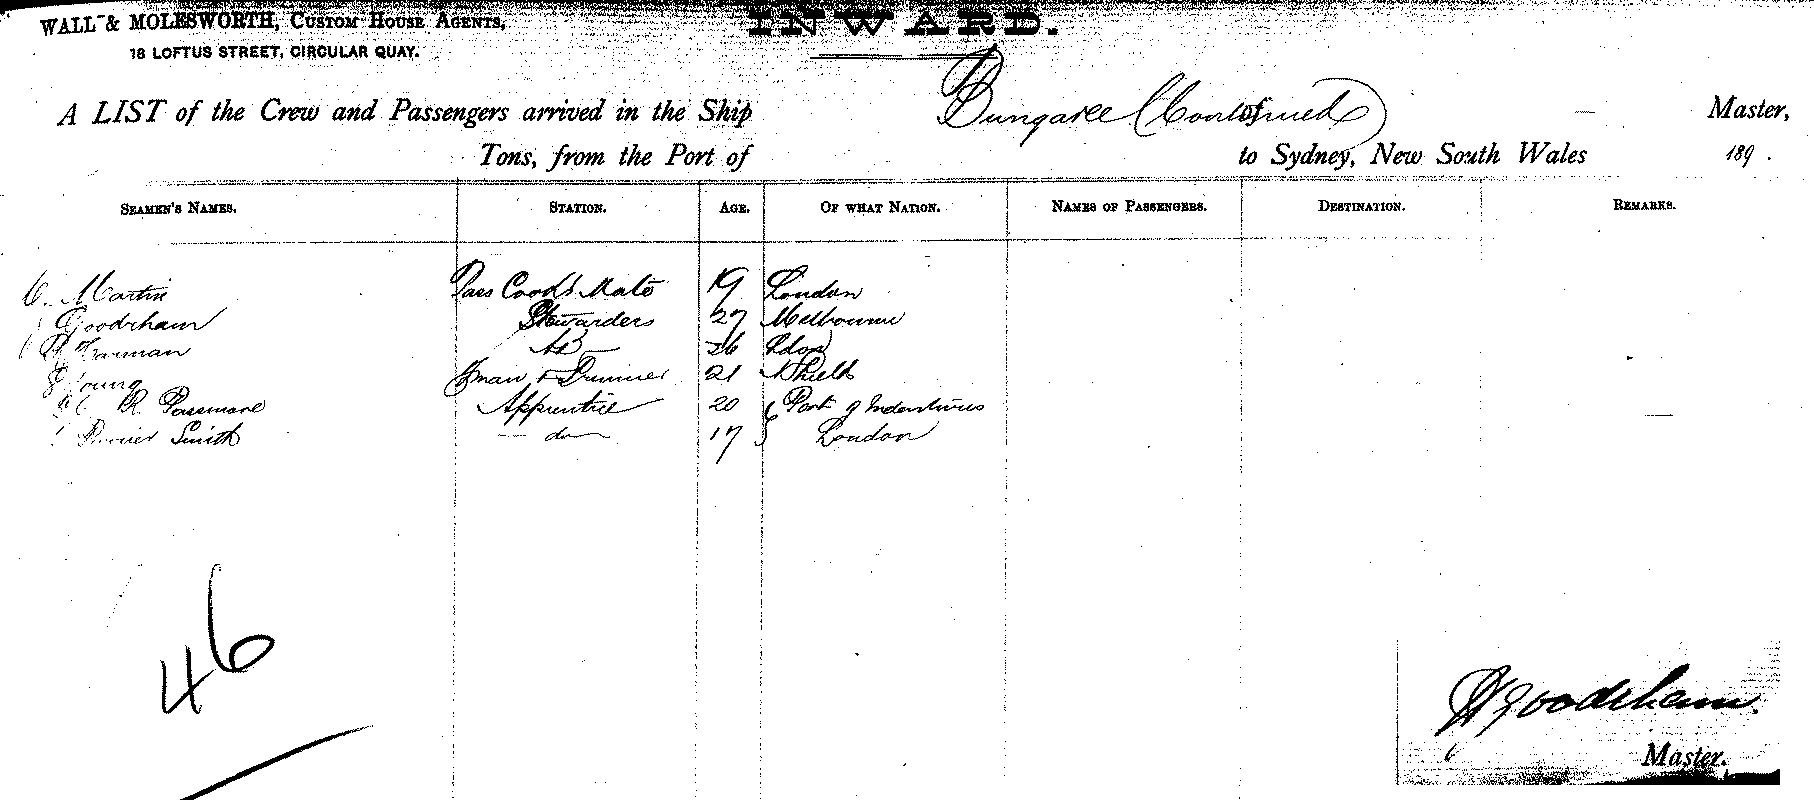 WALL & MOLESWORTH, CUSTOM HOUSE AGENTS,
18 LOFTUS STREET, CIRCULAR QUAY.
INWARD.
A LIST of the Crew and Passengers arrived in the Ship Bungaree (Continued) of — Master,
Tons, from the Port of to Sydney, New South Wales 189 .
SEAMEN'S NAMES. STATION. AGE. OF WHAT NATION. NAMES OF PASSENGERS. DESTINATION. REMARKS.
C. Martin Pass Cook's Mate 19 London
Goodrham Stewardess 27 Melbourne
AB 26 Ldon
Young 21 N Shields
R. Passmore Apprentice 20 Port of Indentures
Smith do 17 London
46
Goodrham.
Master.